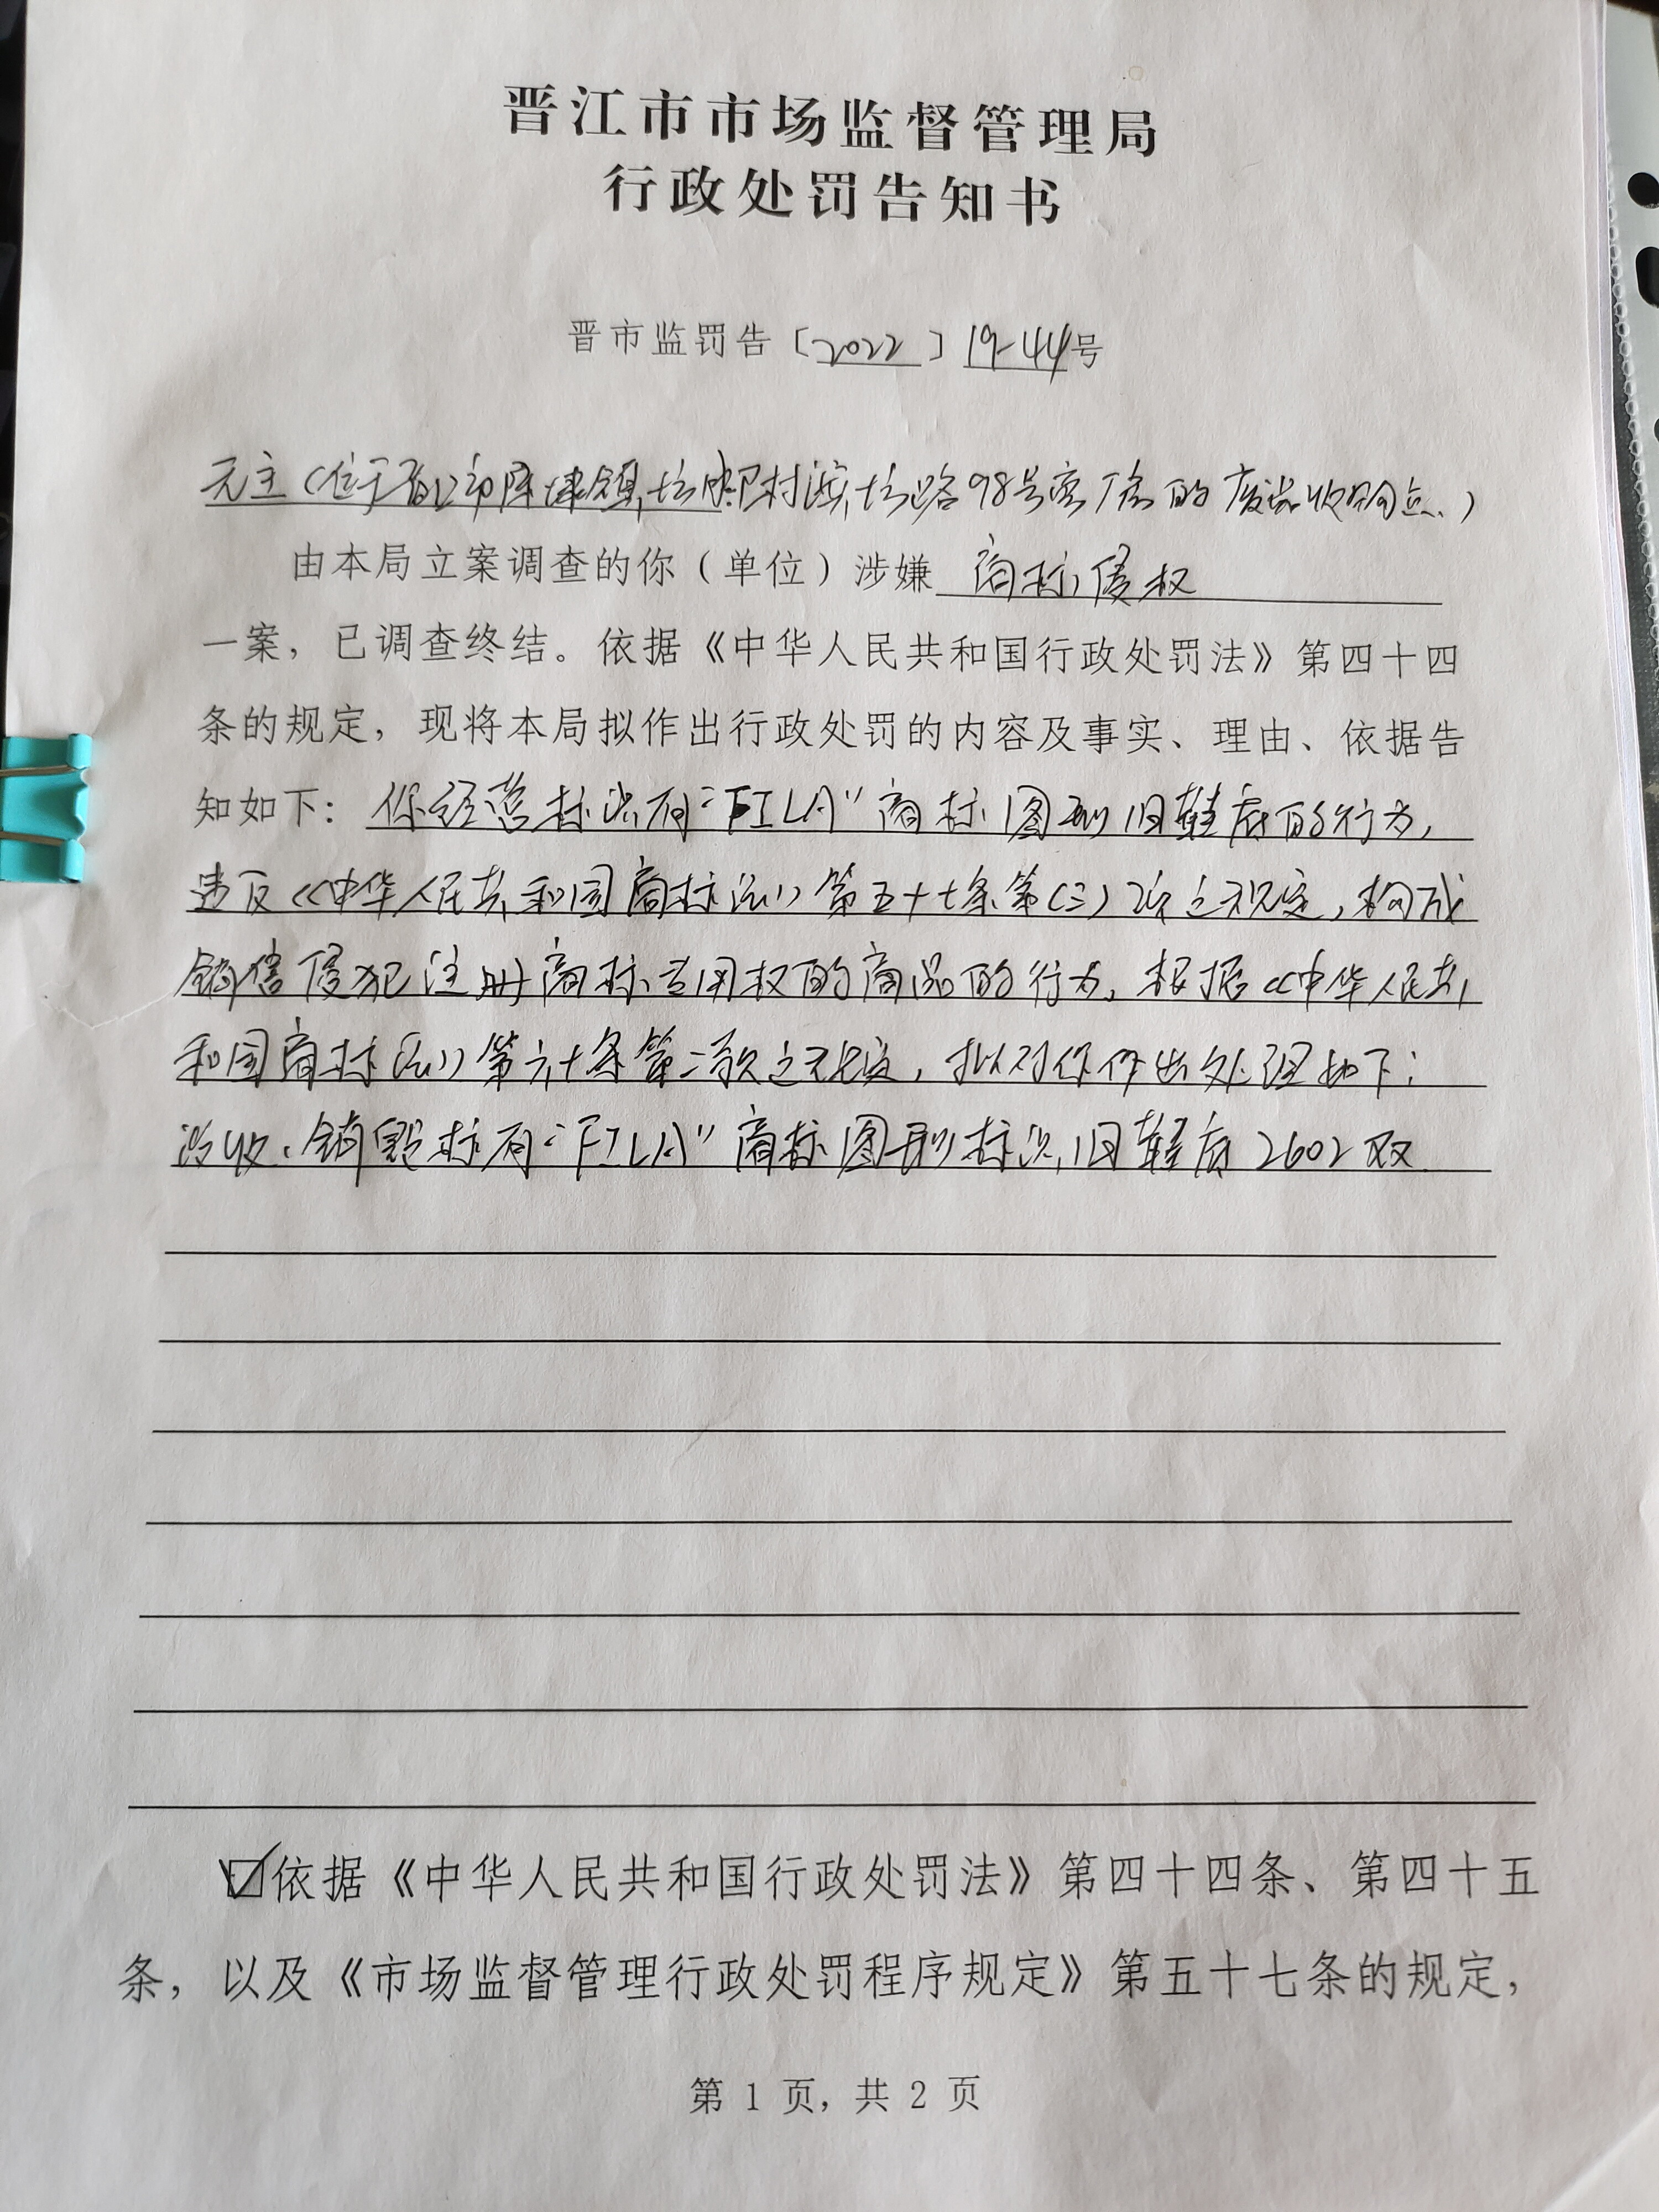 晋江市市场监督管理局
行政处罚告知书
晋市监罚告〔2022〕19-44号
无主（位于晋江市陈埭镇坊脚村滨坊路98号旁厂房的废品收购点）
由本局立案调查的你（单位）涉嫌商标侵权
一案，已调查终结。依据《中华人民共和国行政处罚法》第四十四
条的规定，现将本局拟作出行政处罚的内容及事实、理由、依据告
知如下：你经营标识有“FILA”商标图形旧鞋底的行为，
违反《中华人民共和国商标法》第五十七条第（三）项之规定，构成
销售侵犯注册商标专用权的商品的行为，根据《中华人民共
和国商标法》第六十条第二款之规定，拟对你作出处理如下：
没收、销毁标有“FILA”商标图形标识旧鞋底2602双
☑依据《中华人民共和国行政处罚法》第四十四条、第四十五
条，以及《市场监督管理行政处罚程序规定》第五十七条的规定，
第 1 页，共 2 页